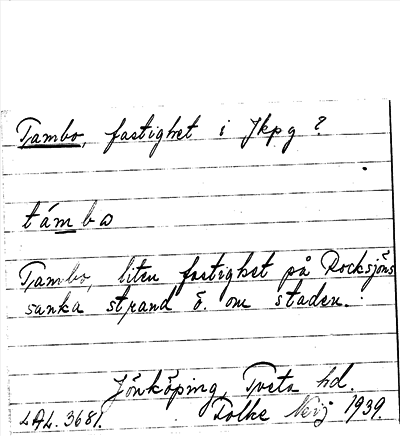 Tambo, fastighet i Jkpg ?
támbω
Tambo, liten fastighet på Rocksjöns
sanka strand ö. om staden.
Jönköping, Tveta hd.
LAL. 3681. Folke 1939.